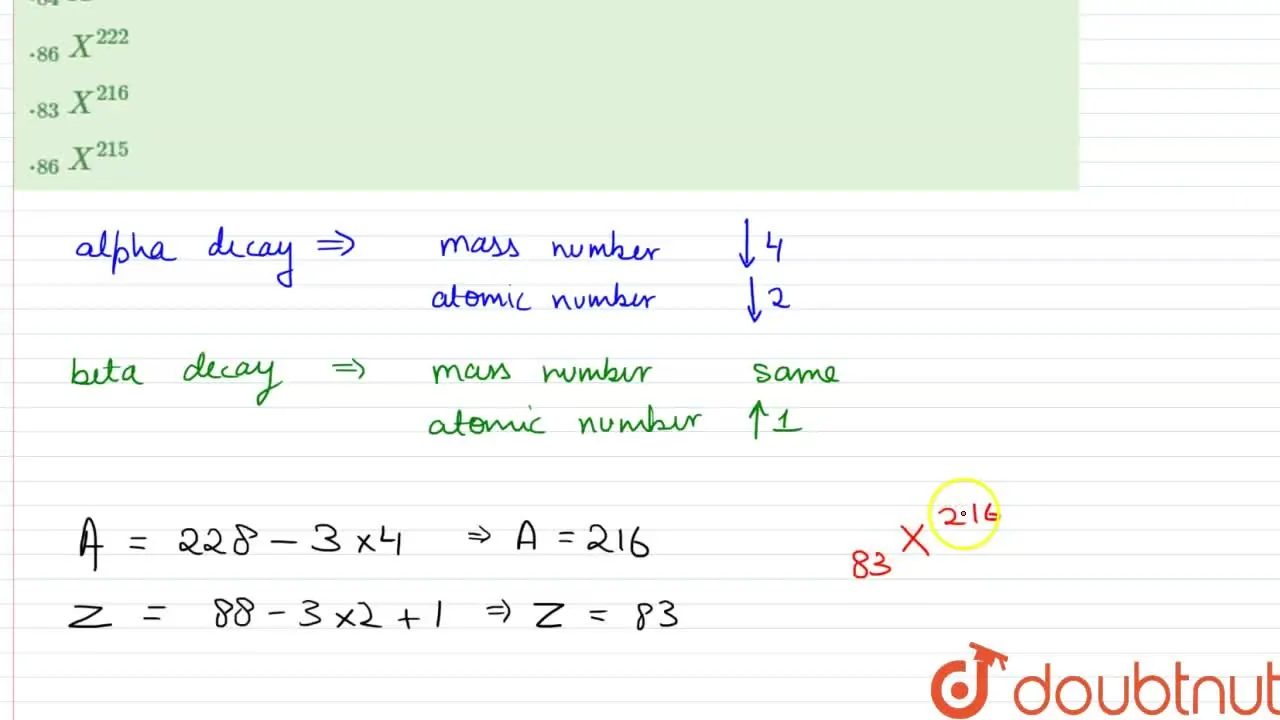 ·86 X^222
·83 X^216
·86 X^215
alpha decay ⇒ mass number ↓ 4
atomic number ↓ 2
beta decay ⇒ mass number same
atomic number ↑ 1
A = 228 – 3 × 4 ⇒ A = 216
83 X^216
Z = 88 – 3 × 2 + 1 ⇒ Z = 83
doubtnut